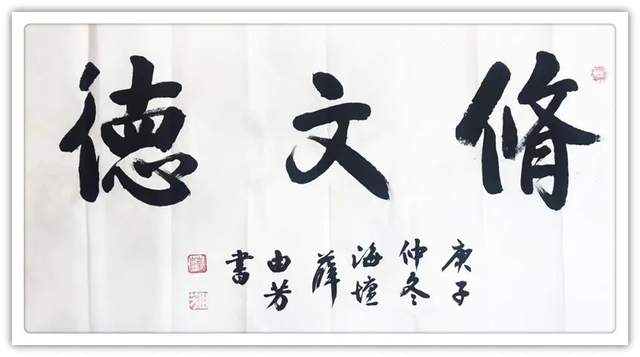 脩文德
庚子
仲冬
海壇
薛
由芳
書